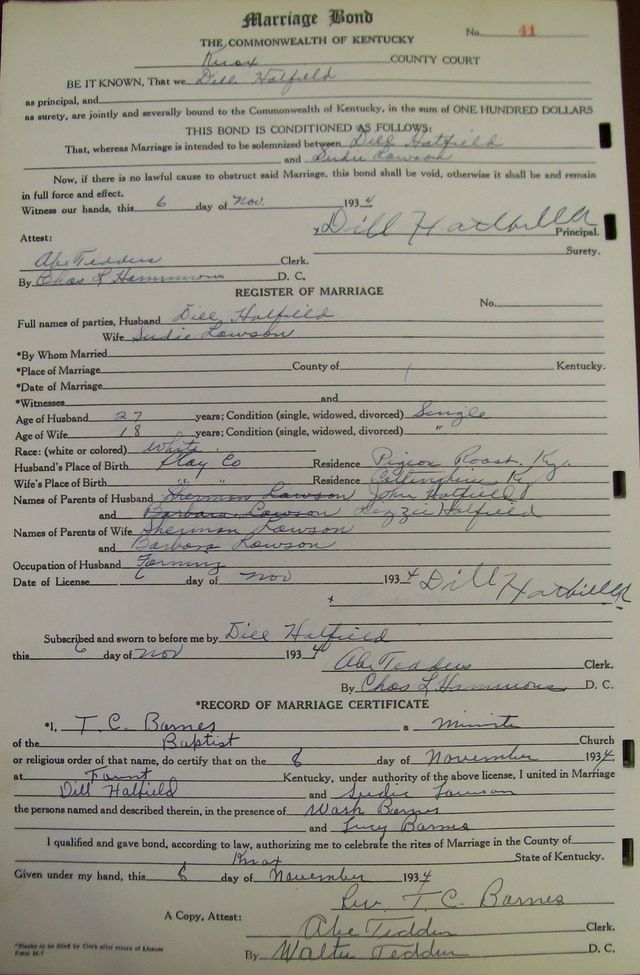 Marriage Bond
No. 41
THE COMMONWEALTH OF KENTUCKY
Knox COUNTY COURT
BE IT KNOWN, That we Dill Hatfield
as principal, and
as surety, are jointly and severally bound to the Commonwealth of Kentucky, in the sum of ONE HUNDRED DOLLARS
THIS BOND IS CONDITIONED AS FOLLOWS:
That, whereas Marriage is intended to be solemnized between Dill Hatfield
and Sudie Lawson
Now, if there is no lawful cause to obstruct said Marriage, this bond shall be void, otherwise it shall be and remain
in full force and effect.
Witness our hands, this 6 day of Nov. 1934
x Dill Hatbiller Principal.
Attest: Surety.
Abe Tedders Clerk.
By Chas L Hammons D. C.
REGISTER OF MARRIAGE
No.
Full names of parties, Husband Dill Hatfield
Wife Sudie Lawson
*By Whom Married
*Place of Marriage County of Kentucky.
*Date of Marriage
*Witnesses and
Age of Husband 27 years; Condition (single, widowed, divorced) Single
Age of Wife 18 years; Condition (single, widowed, divorced) "
Race: (white or colored) White.
Husband's Place of Birth Clay Co Residence Pigeon Roost. Ky.
Wife's Place of Birth " " Residence Ky
Names of Parents of Husband Sherman Lawson John Hatfield
and Barbara Lawson Lizzie Hatfield
Names of Parents of Wife Sherman Lawson
and Barbara Lawson
Occupation of Husband Farming
Date of License 6 day of Nov 1934 Dill Hatbiller
x
Subscribed and sworn to before me by Dill Hatfield
this 6 day of Nov 1934
Abe Tedders Clerk.
By Chas L Hammons D. C.
*RECORD OF MARRIAGE CERTIFICATE
*I, T. C. Barnes a Ministe
of the Baptist Church
or religious order of that name, do certify that on the 8 day of November 1934
at Fount Kentucky, under authority of the above license, I united in Marriage
Dill Hatfield and Sudie Lawson
the persons named and described therein, in the presence of Wash Barnes
and Lucy Barnes
I qualified and gave bond, according to law, authorizing me to celebrate the rites of Marriage in the County of
Knox State of Kentucky.
Given under my hand, this 8 day of November 1934
Rev T. C. Barnes
A Copy, Attest: Abe Tedders Clerk.
By Walter Tedders D. C.
*Blanks to be filed by Clerk after return of License
Form M-7